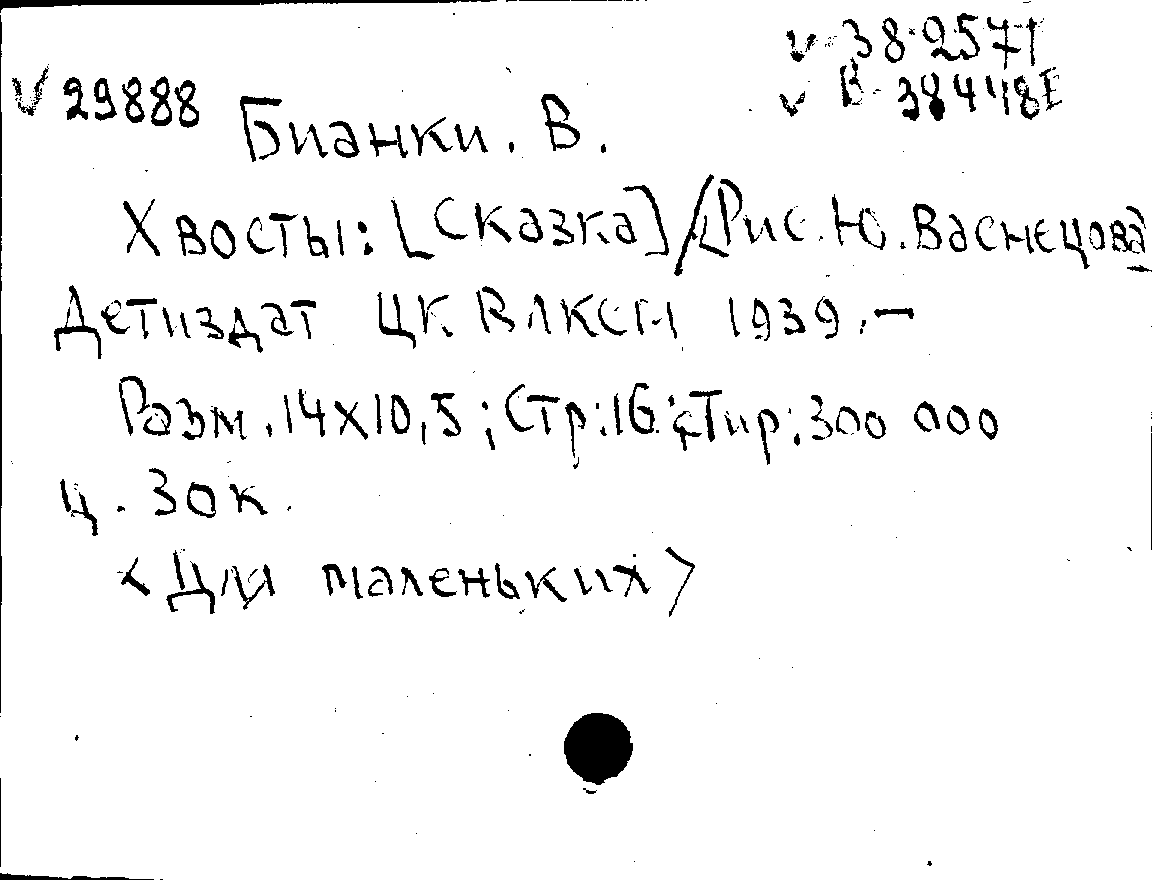 V 38-2571
V 29888
V В-38448Е
Бианки. В.
Хвосты: [Сказка] / [Рис. Ю. Васнецова
Детиздат ЦК ВЛКСМ 1939. –
Разм. 14х10,5; Стр: 16; Тир: 300 000
ц. 30к.
<Для маленьких>